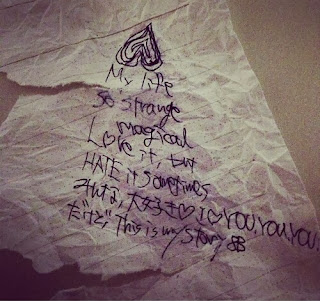 My life
so strange
magical
Love it, but
HATE it sometimes
みんな、大好き♡ I ♡ YOU, YOU, YOU.
だけど、This is my story